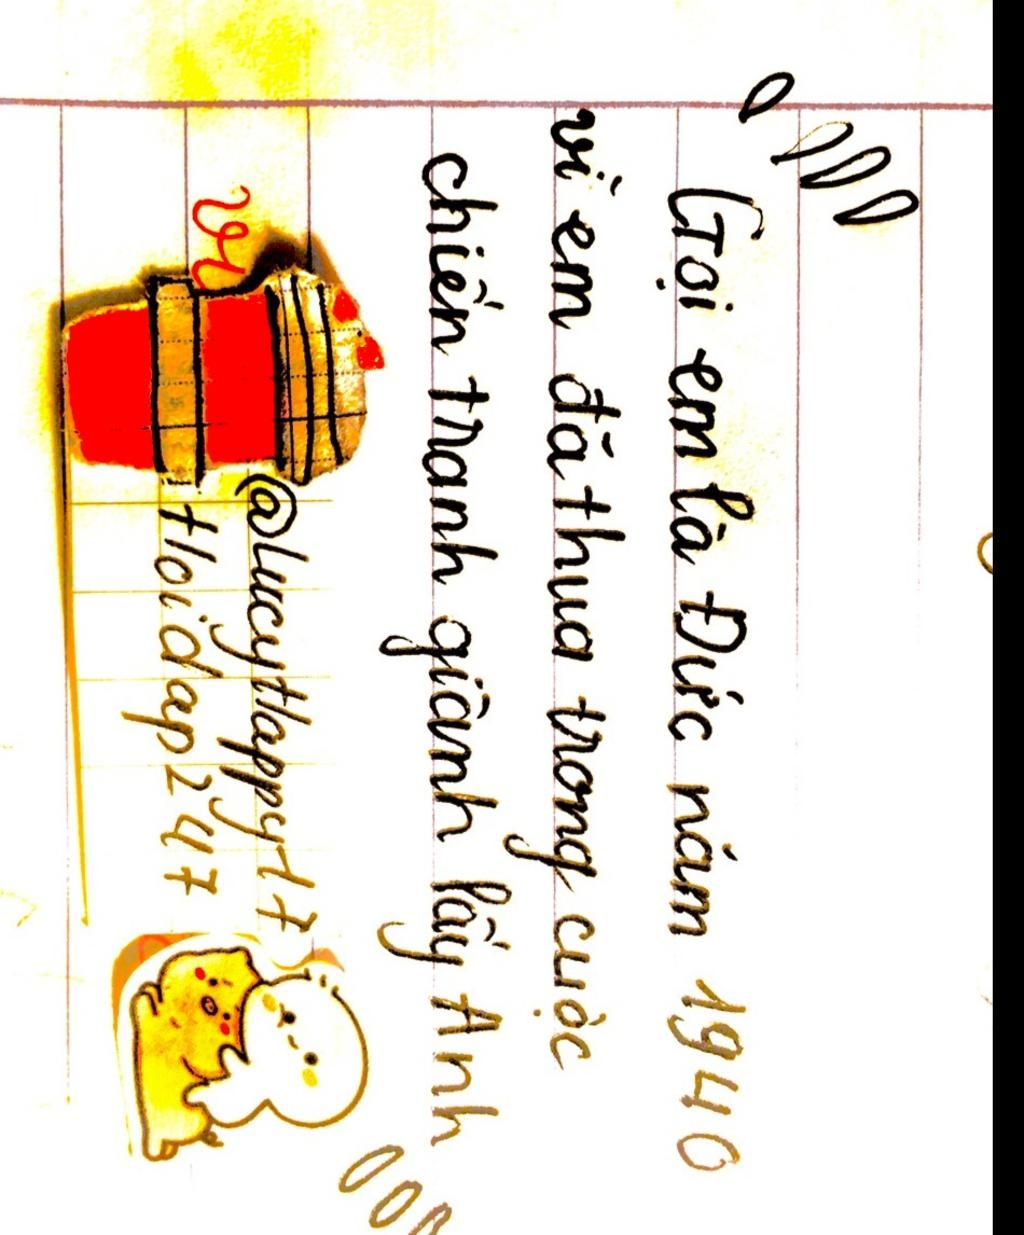 Gọi em là Đức năm 1940
vì em đã thua trong cuộc
chiến tranh giành lấy Anh
@LucyHappy17
Hoidap247